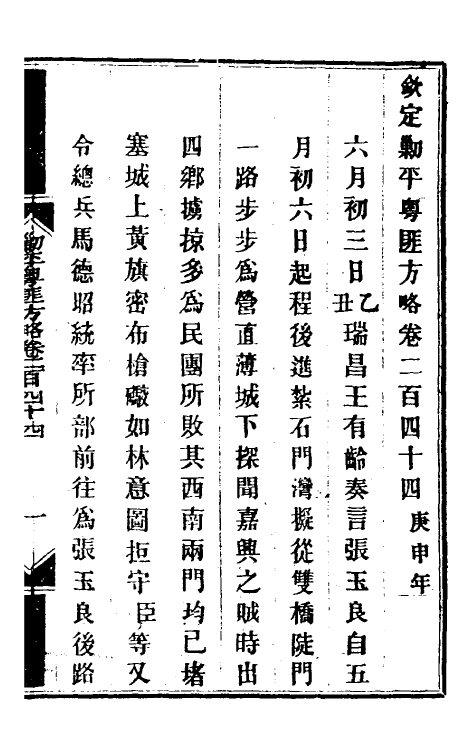 欽定勦平粵匪方略卷二百四十四 庚申年
六月初三日乙丑瑞昌王有齡奏言張玉良自五
月初六日起程後進紮石門灣擬從雙橋陡門
一路步步爲營直薄城下探聞嘉興之賊時出
四鄉擄掠多爲民團所敗其西南兩門均已堵
塞城上黃旗密布槍礮如林意圖拒守臣等又
令總兵馬德昭統率所部前往爲張玉良後路
勦平粵匪方略卷二百四十四
一